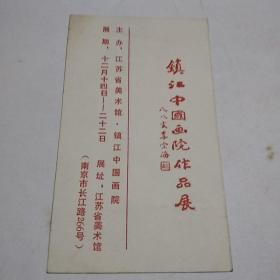 鎮江中國画院作品展
八八叟李宗海題
主办，江苏省美术馆·镇江中国画院
展期，十二月十四日—二十二日
展址，江苏省美术馆
（南京市长江路266号）